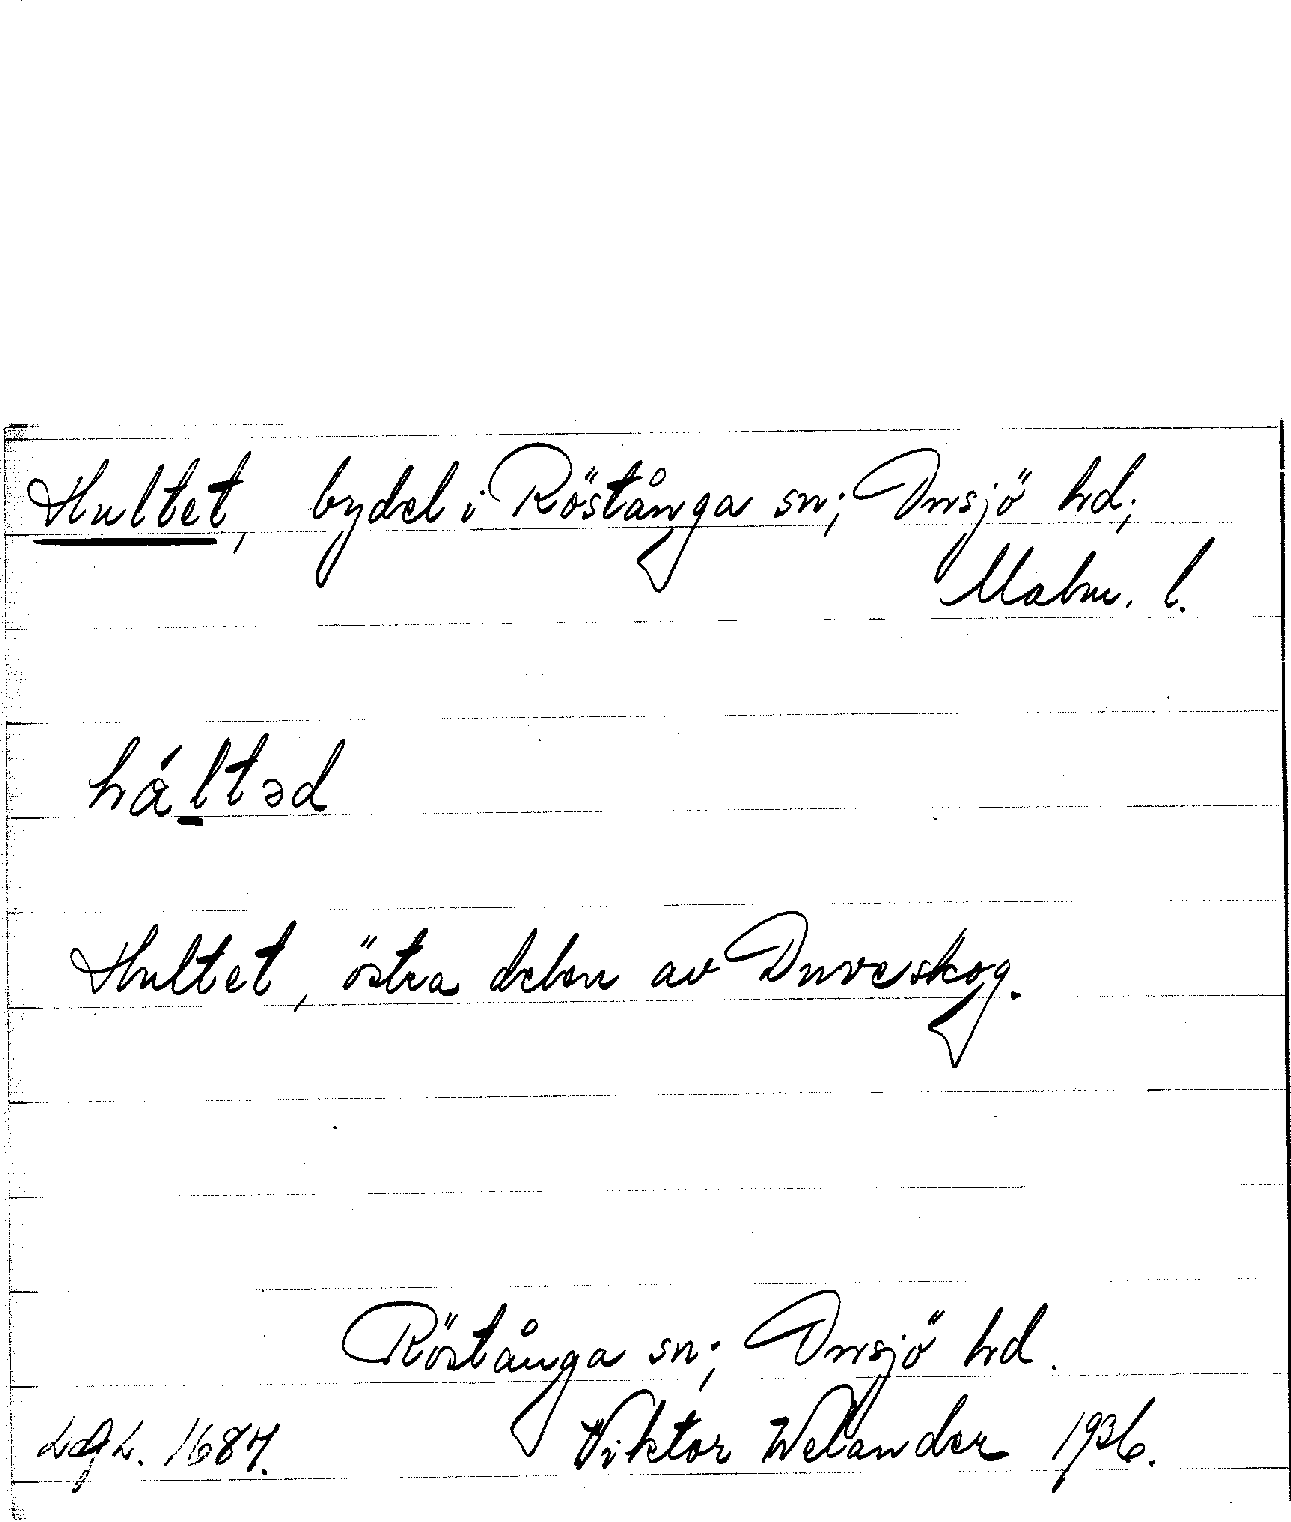 Hultet, bydel i Röstånga sn; Onsjö hd;
Malm. l.
háltəd
Hultet, östra delen av Duveskog.
Röstånga sn; Onsjö hd.
1687. Viktor Welander 1936.